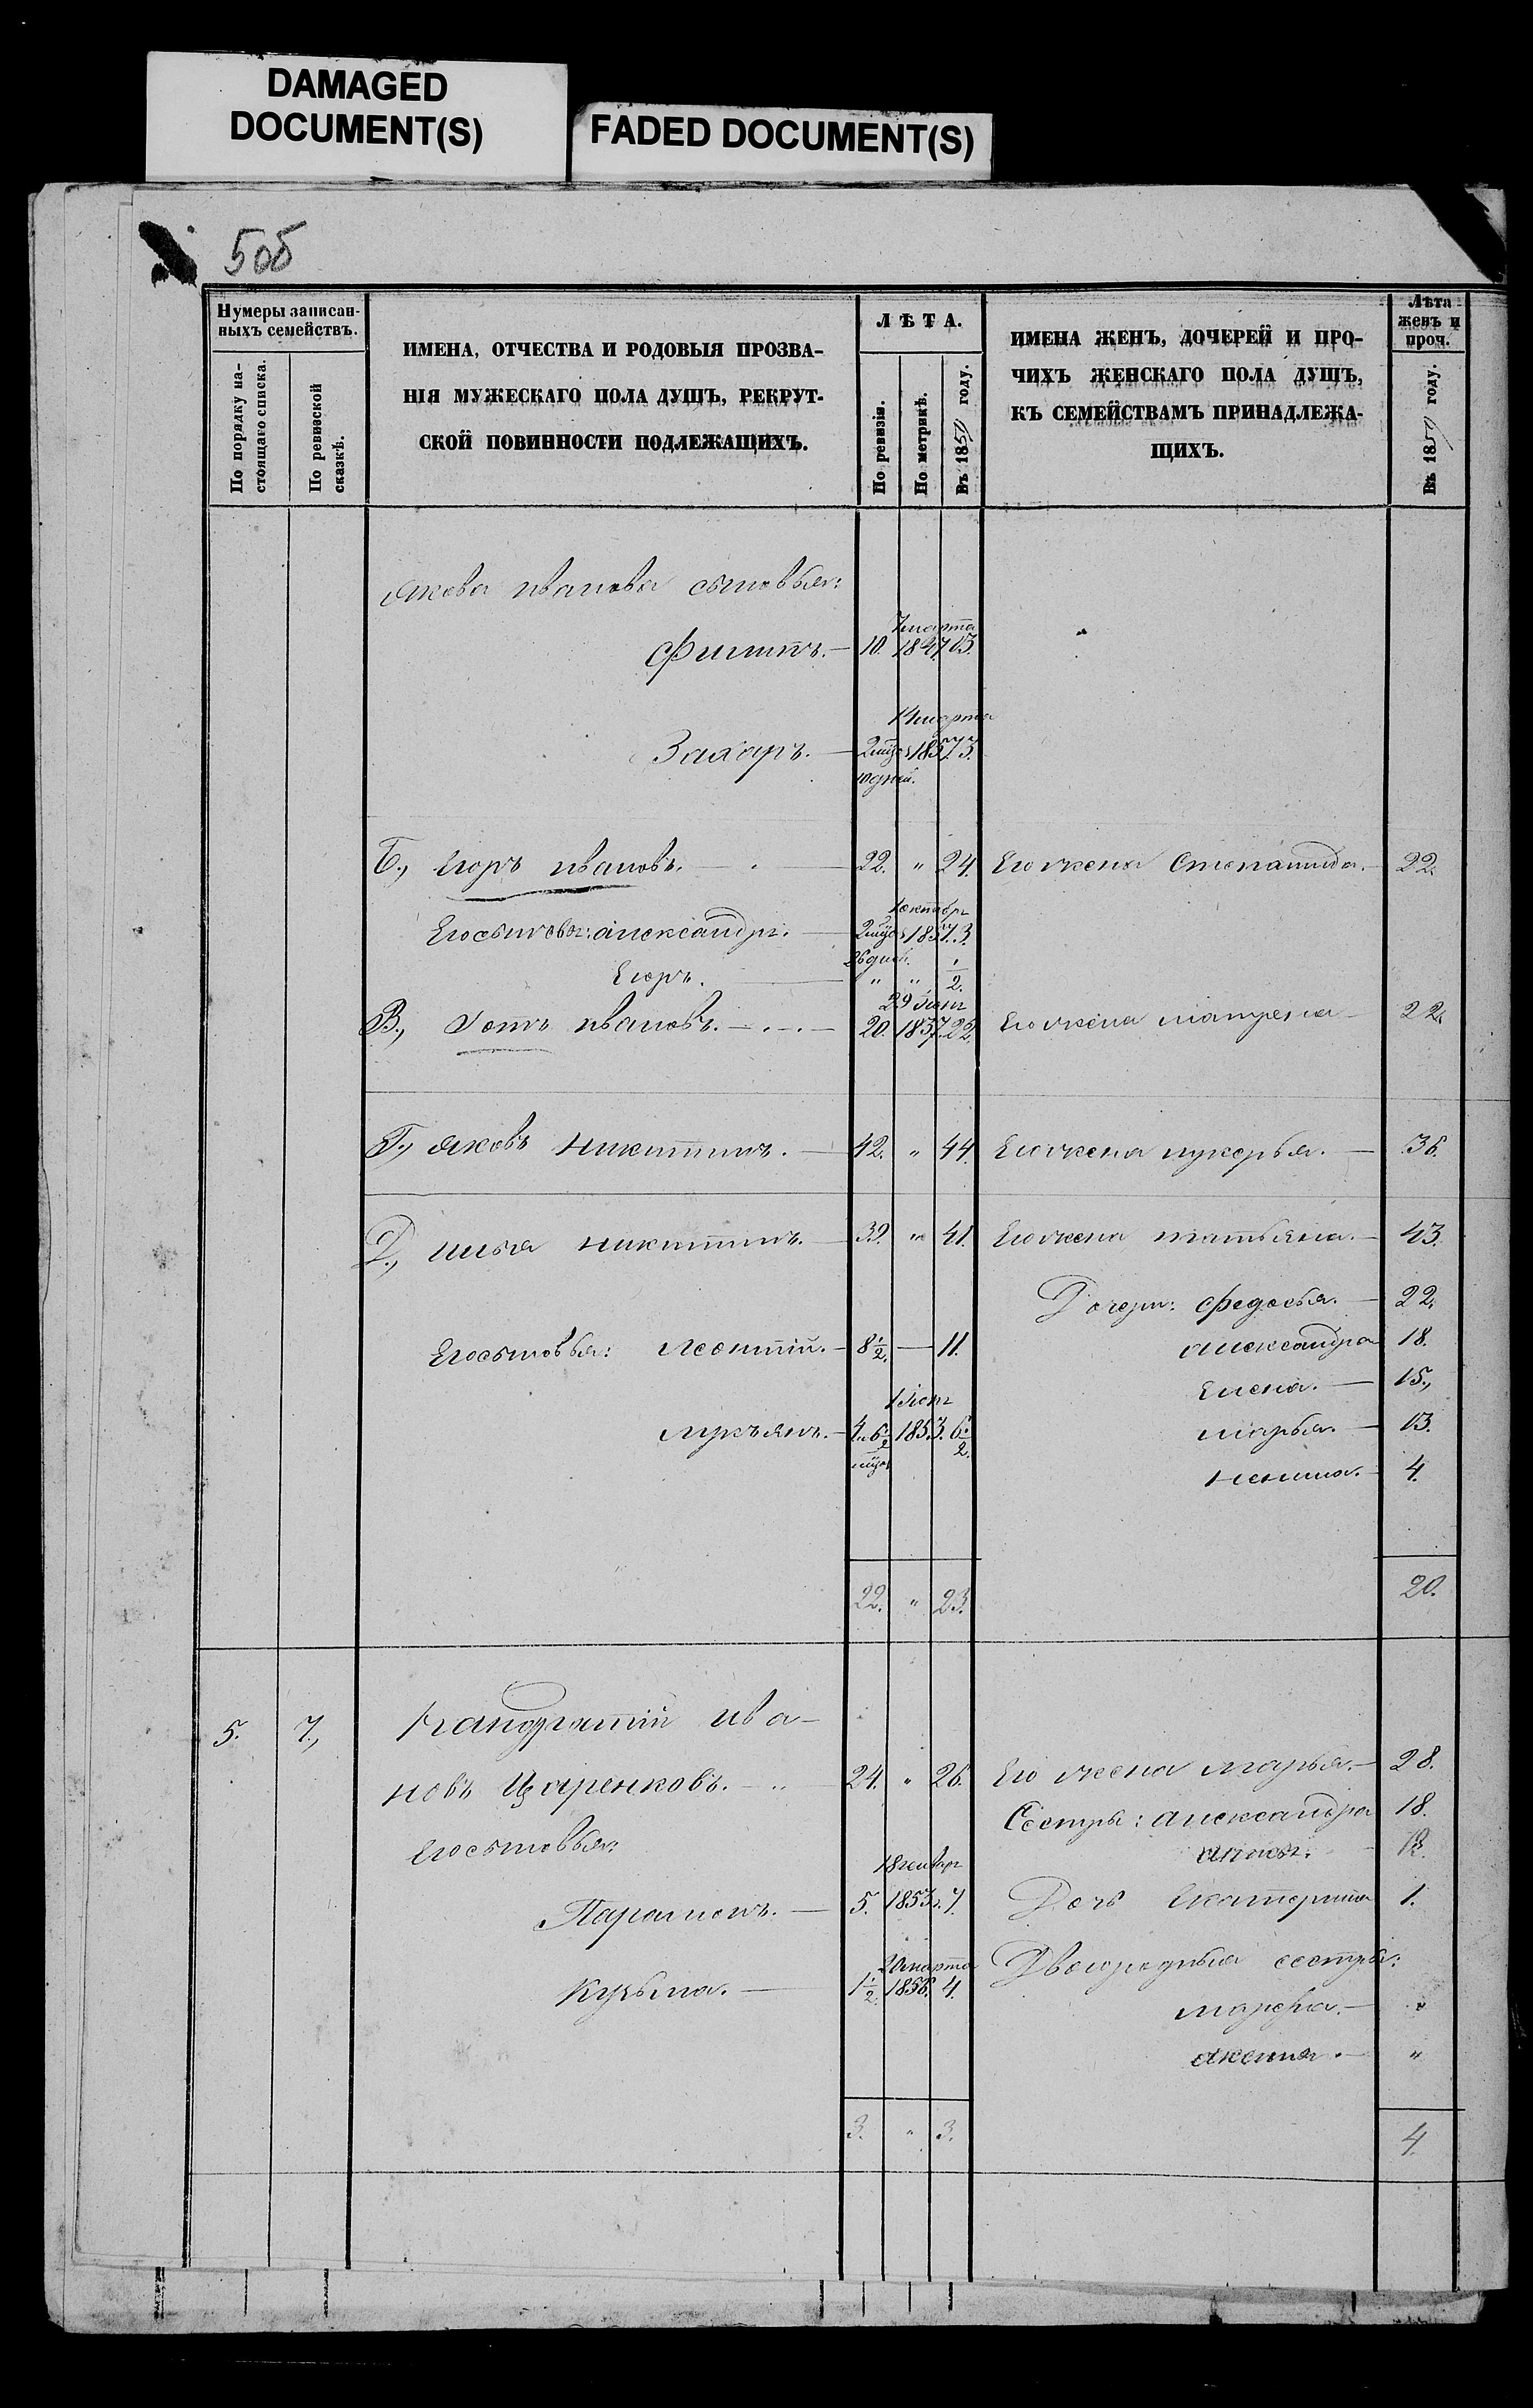 DAMAGED
DOCUMENT(S)
FADED DOCUMENT(S)
505
Нумеры записан-
ныхъ семействъ.
По порядку на-
стоящаго списка.
По ревизской
сказкѣ.
ИМЕНА, ОТЧЕСТВА И РОДОВЫЯ ПРОЗВА-
НІЯ МУЖЕСКАГО ПОЛА ДУШЪ, РЕКРУТ-
СКОЙ ПОВИННОСТИ ПОДЛЕЖАЩИХЪ.
ЛѢТА.
По ревизіи.
По метрикѣ.
Въ 1859 году.
ИМЕНА ЖЕНЪ, ДОЧЕРЕЙ И ПРО-
ЧИХЪ ЖЕНСКАГО ПОЛА ДУШЪ,
КЪ СЕМЕЙСТВАМЪ ПРИНАДЛЕЖА-
ЩИХЪ.
Лѣта
женъ и
проч.
Въ 1859 году.
Якова Иванова сыновья:
7 марта
Филипъ. — 10. 1847 13.
14 марта
Захаръ. — 2 мѣс 1857. 3.
10 дней.
Б., Егоръ Ивановъ. — 22. " 24. Его жена Степанида. — 22.
1 октябр
Его сыновья: Александръ. — 2 мѣс 1857. 3.
26 дней.
Егоръ. — " " 1/2.
29 Іюня
В., Фотъ Ивановъ. — 20. 1837. 22. Его жена Матрена — 22.
Г., Яковъ Никитинъ. — 42. " 44. Его жена Лукерья. — 36.
Д., Илья Никитинъ. — 39. " 41. Его жена Татьяна. — 43.
Дочери: Федосья. — 22.
Его сыновья: Леонтій. — 8 1/2. — 11. Александра 18.
Елена. — 15.,
1 Іюня
Лукъянъ. — 4 и 6 1853. 6 1/2. Марья. — 13.
мѣс.
Ненила. — 4.
22. " 23. 20.
5. 7., Кандратій Ива-
новъ Царенковъ. — 24. " 26. Его жена Марья. — 28.
Сестры: Александра 18.
Его сыновья:
18 генвар
Анна.
Парамонъ. — 5. 1853. 7. Дочь Екатерина 1.
20 марта
Двоюродныя сестры:
Кузьма. — 1 1/2. 1856. 4.
Марфа. — "
Аксинья. — "
3. " 3. 4.